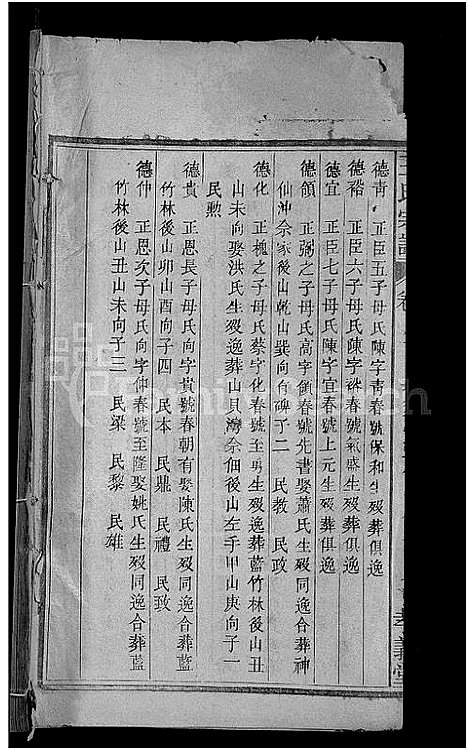 王氏宗譜 卷
德靑 正臣五子母氏陳字靑春號保和生歿葬俱逸
德裕 正臣六子母氏陳字裕春號氣盛生歿葬俱逸
德宜 正臣七子母氏陳字宜春號上元生歿葬俱逸
德頒 正弼之子母氏高字頒春號先書娶蕭氏生歿同逸合葬神
仙沖佘家後山乾山巽向有碑子二 民敎 民政
德化 正槐之子母氏蔡字化春號至男生歿逸葬藍竹林後山丑
山未向娶洪氏生歿逸葬山貝灣佘佃後山左手甲山庚向子一
民勲
德貴 正恩長子母氏向字貴號春朝有娶陳氏生歿同逸合葬藍
竹林後山卯山酉向子四 民本 民鼎 民禮 民政
德仲 正恩次子母氏向字仲春號至隆娶姚氏生歿同逸合葬藍
竹林後山丑山未向子三 民梁 民黎 民雄
孝義堂